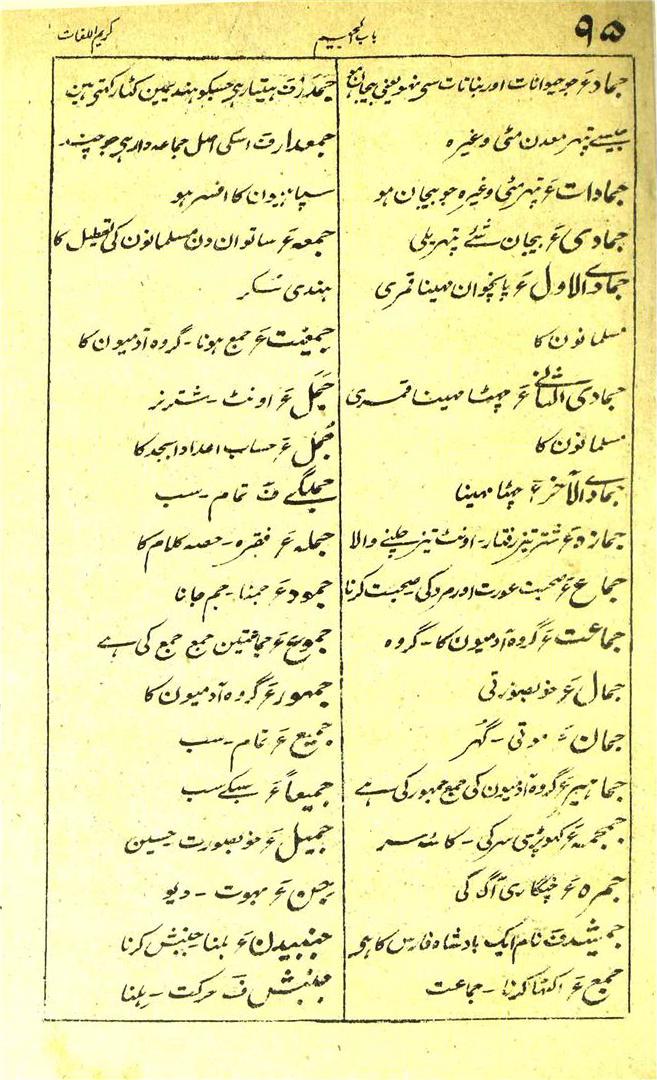 ۹۵
باب الجیم
کریم اللغات
جماد ع جو حیوانات اور بناتات سی نہو یعنی بیجان جمع
جیسے پتہر معدن مٹی وغیرہ
جمادات ع پتہر مٹی وغیرہ جو بیجان ہو
جمادی ع بیجان شئے پتہریلی
جمادی الاول ع پانچوان مہینا قمری
مسلمانون کا
جمادی الثانی ع چھٹا مہینا قمری
مسلمانون کا
جمادی الآخر ع چھٹا مہینا
جمازہ ع شتر تیز رفتار۔ اونٹ تیز چلنے والا
جماع ع صحبت عورت اور مرد کی صحبت کرنا
جماعت ع گروہ آدمیون کا۔ گروہ
جمال ع خوبصورتی
جمان ع موتی۔ گہر
جماہیر ع گروہ آدمیون کی جمع جمہور کی ہے
جمجمہ ع کہوپڑی سر کی۔ کاسۂ سر
جمرہ ع چنگاری آگ کی
جمشید ف نام ایک بادشاہ فارس کا ہی
جمع ع اکٹھا کرنا۔ جماعت
جمدر ف ہتیار ہی جسکو ہند یمین کٹار کہتی ہین
جمعدار ف اسکی اصل جماعہ دار ہی جو چند
سپاہیون کا افسر ہو
جمعہ ع ساتوان دن مسلمانون کی تعطیل کا
ہندی شکر
جمعیت ع جمع ہونا۔ گروہ آدمیون کا
جمل ع اونٹ۔ شتر نر
جمل ع حساب اعداد ابجد کا
جملگی ف تمام۔ سب
جملہ ع فقرہ۔ حصہ کلام کا
جمود ع جمنا۔ جم جانا
جموع ع جماعتین جمع جمع کی ہے
جمہور ع گروہ آدمیون کا
جمیع ع تمام۔ سب
جمیعاً ع سبکے سب
جمیل ع خوبصورت حسین
جن ع بہوت۔ دیو
جنبیدن ع ہلنا جنبش کرنا
جنبش ف حرکت۔ ہلنا